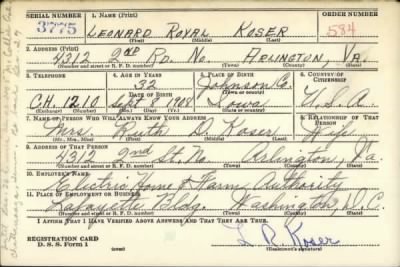 SERIAL NUMBER 1. NAME (Print) ORDER NUMBER
3775 LEONARD ROYAL KOSER 584
(First) (Middle) (Last)
2. ADDRESS (Print)
4312 2ND RD. NO. ARLINGTON, VA.
(Number and street or R. F. D. number) (Town) (County) (State)
3. TELEPHONE 4. AGE IN YEARS 5. PLACE OF BIRTH 6. COUNTRY OF CITIZENSHIP
32 Johnson Co.
DATE OF BIRTH (Town or county)
C.H. 1210 Sept 8 1908 Iowa U.S.A.
(Exchange) (Number) (Mo.) (Day) (Yr.) (State or country)
7. NAME OF PERSON WHO WILL ALWAYS KNOW YOUR ADDRESS 8. RELATIONSHIP OF THAT PERSON
Mrs. Ruth D. Koser Wife
(Mr., Mrs., Miss) (First) (Middle) (Last)
9. ADDRESS OF THAT PERSON
4312 2nd St. No. Arlington, Va.
(Number and street or R. F. D. number) (Town) (County) (State)
10. EMPLOYER'S NAME
Electric Home & Farm Authority
11. PLACE OF EMPLOYMENT OR BUSINESS
Lafayette Bldg. Washington, D.C.
(Number and street or R. F. D. number) (Town) (County) (State)
I AFFIRM THAT I HAVE VERIFIED ABOVE ANSWERS AND THAT THEY ARE TRUE.
REGISTRATION CARD
D. S. S. Form 1
L. R. Koser
(Registrant's signature)